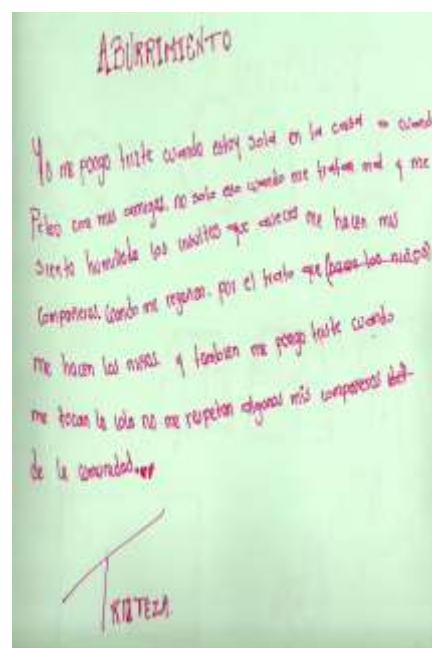 ABURRIMIENTO
Yo me pongo triste cuando estoy sola en la casa o cuando
Peleo con mis amigas. no solo eso cuando me tratan mal y me
siento humillada los insultos que aveces me hacen mis
compañeros. Cuando me regañan. por el trato que (pasa los niños)
me hacen las niñas y tambien me pongo triste cuando
me tocan la cola no me respetan algunos mis compañeros
de la comunidad.
TRISTEZA